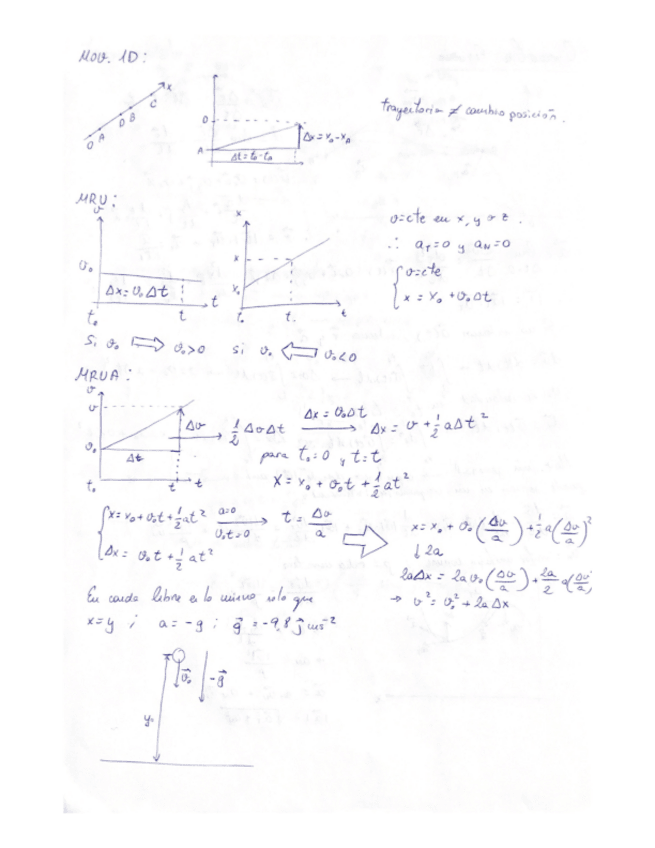 Mov. 1D:
O A D B C x
D
A
Δx = x₀ - x_A
Δt = t₀ - t_A
trayectoria ≠ cambio posición.
MRU:
v
v₀
Δx = v₀Δt
t₀ t t
x
x
x₀
t₀ t t
v=cte en x, y o z.
∴ a_T=0 y a_N=0
v=cte
x = x₀ + v₀Δt
Si v₀ ⇒ v₀>0 Si v₀ ⇐ v₀<0
MRUA:
v
v
v₀
Δv
Δt
t₀ t t
→ ½ ΔvΔt
Δx = v₀Δt
→ Δx = v + ½ aΔt²
para t₀=0 y t=t
x = x₀ + v₀t + ½ at²
x = x₀ + v₀t + ½ at²
Δx = v₀t + ½ at²
a=0
v₀t=0
→ t = Δv/a ⇒
x = x₀ + v₀(Δv/a) + ½ a(Δv/a)²
↓ 2a
2aΔx = 2av₀(Δv/a) + 2a/2 a(Δv/a)
→ v² = v₀² + 2aΔx
En caida libre es lo mismo solo que
x=y ; a = -g ; g⃗ = -9,8 j⃗ ms⁻²
v⃗₀
-g⃗
y₀